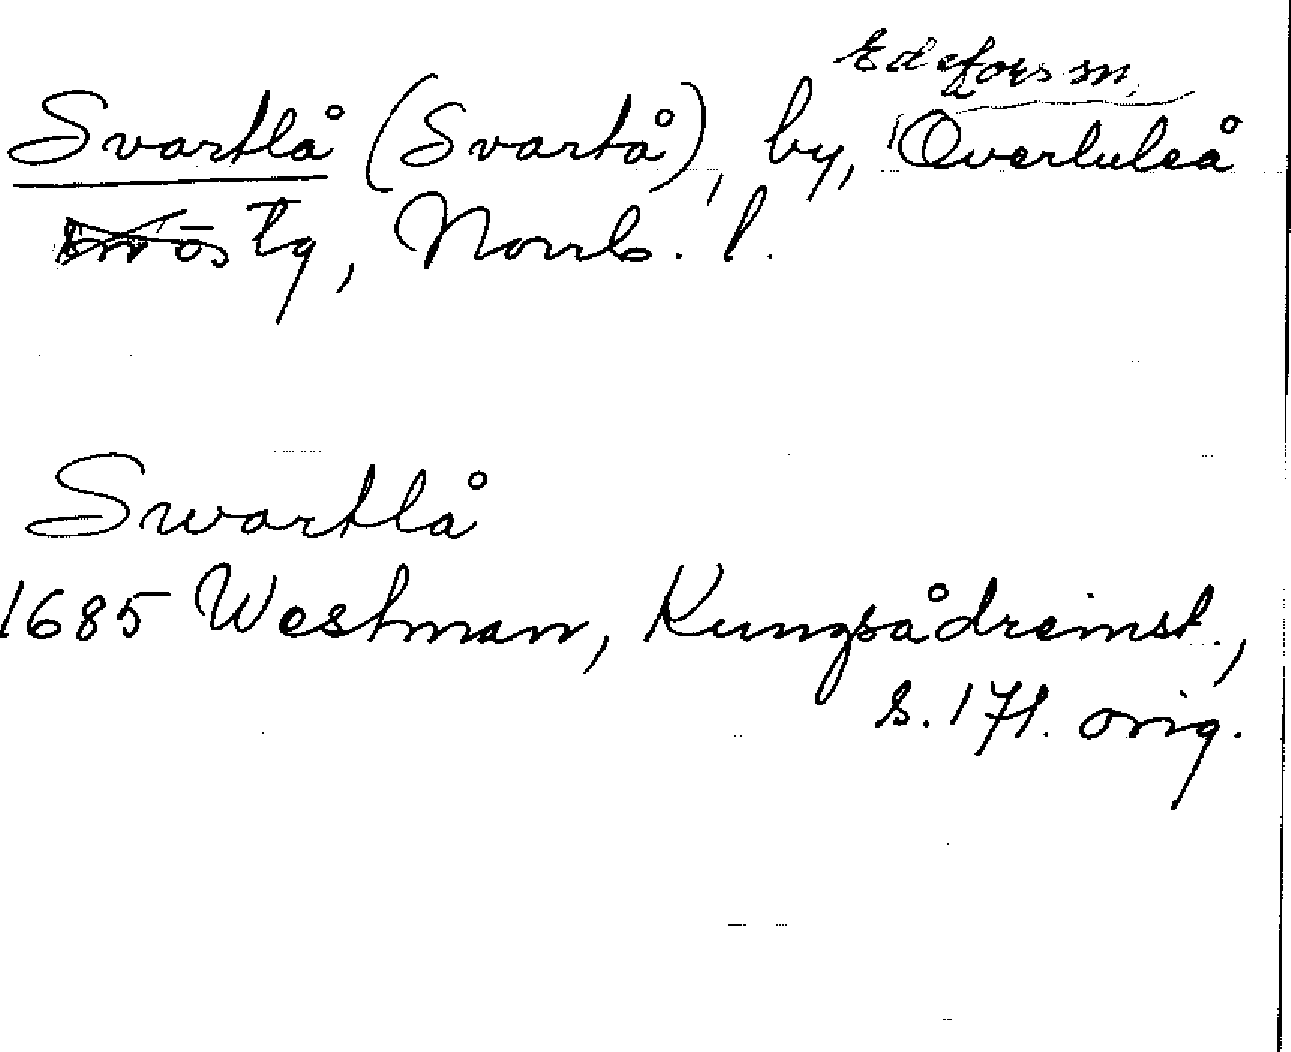 Edefors sn,
Svartlå (Svartå), by, Överluleå
ös tg, Norrb. l.
Swartlå
1685 Westman, Kungsådreinst.,
s. 171. orig.